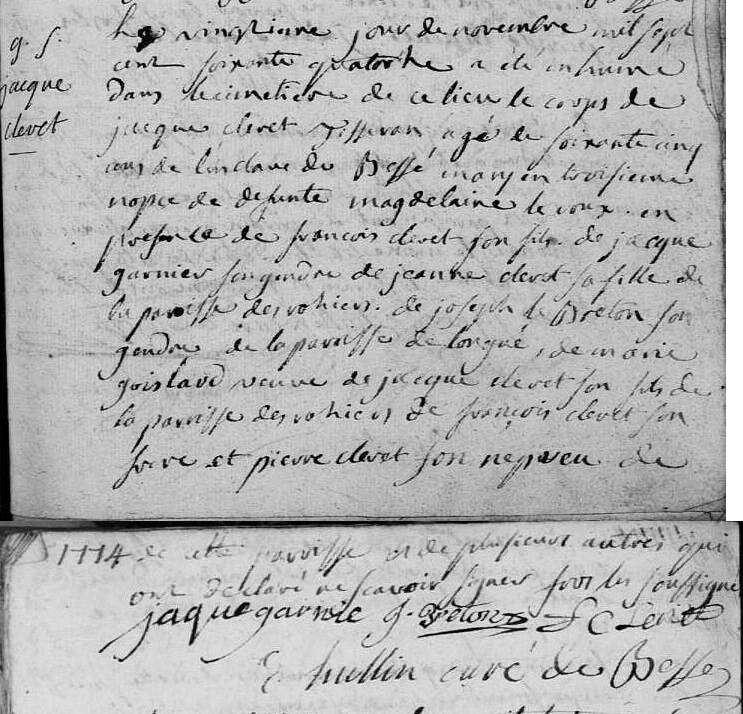 g. s.
jacque
clevet
Le vingtieme jour de novembre mil sept
cent soixante quatorze a eté inhumé
dans le cimetiere de ce lieu le corps de
jacque clevet Tisseran agé de soixante cinq
ans de l'enclave de Bessé mary en troisieme
nopce de defunte magdelaine le roux. en
presence de françois clevet son fils. de jacque
garnier son gendre de jeanne clevet sa fille de
la paroisse des rohiers. de joseph le Breton son
gendre de la paroisse de longué, de marie
goislard veuve de jacque clevet son fils de
la paroisse des rohiers de françois clevet son
frere et pierre clevet son nepveu de
1774 de cette paroisse et de plusieurs autres qui
ont declaré ne scavoir signer fors les soussigné
jaque garnie J. Breton F Clevet
hullin curé de Bessé